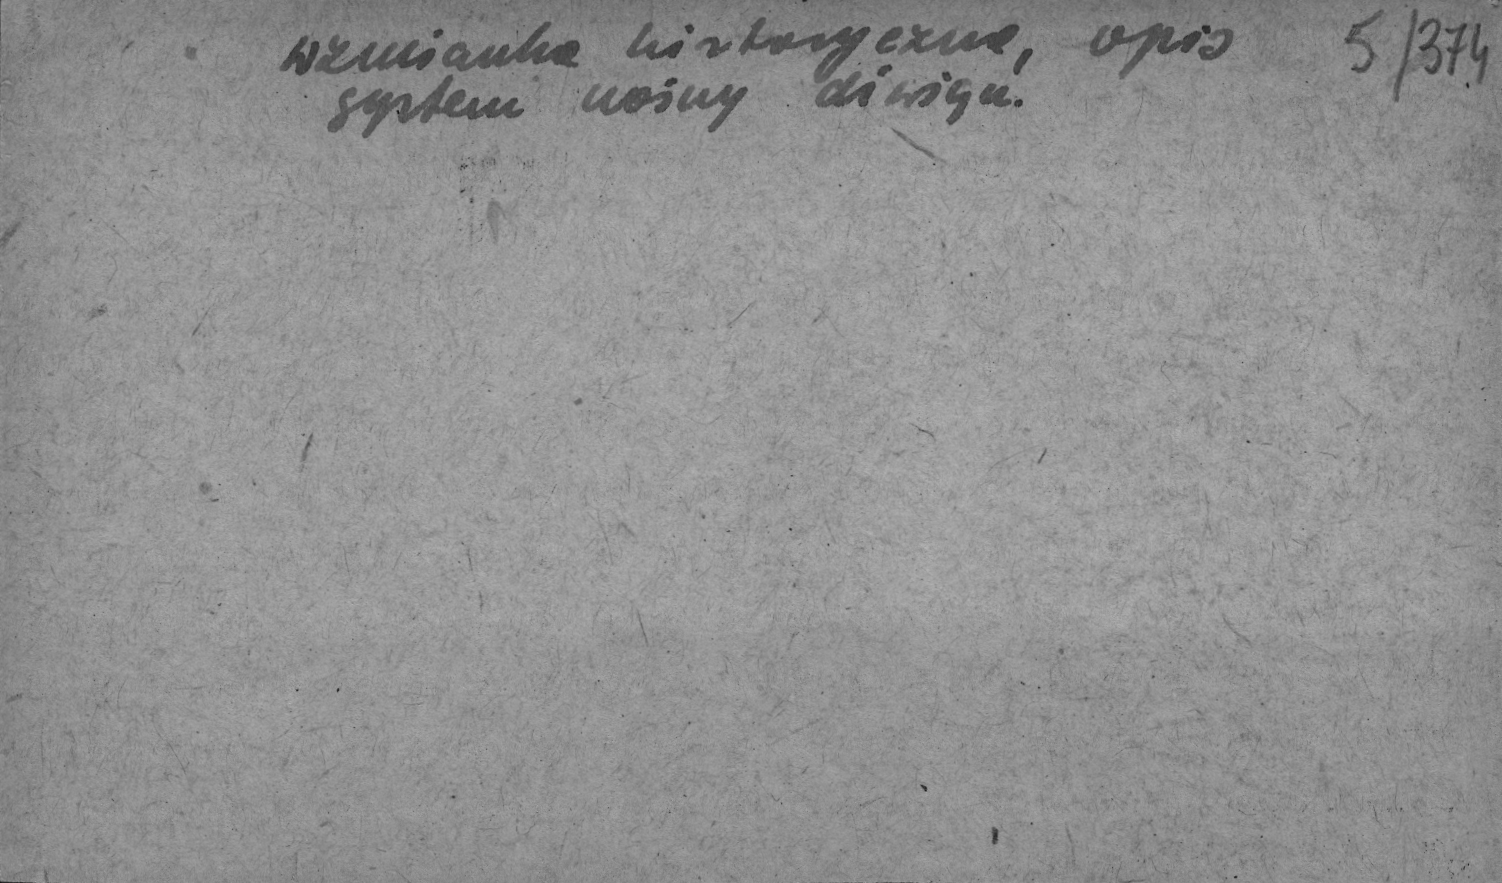 wzmianka historyczna, opis 5/374
system nośny dźwigu.